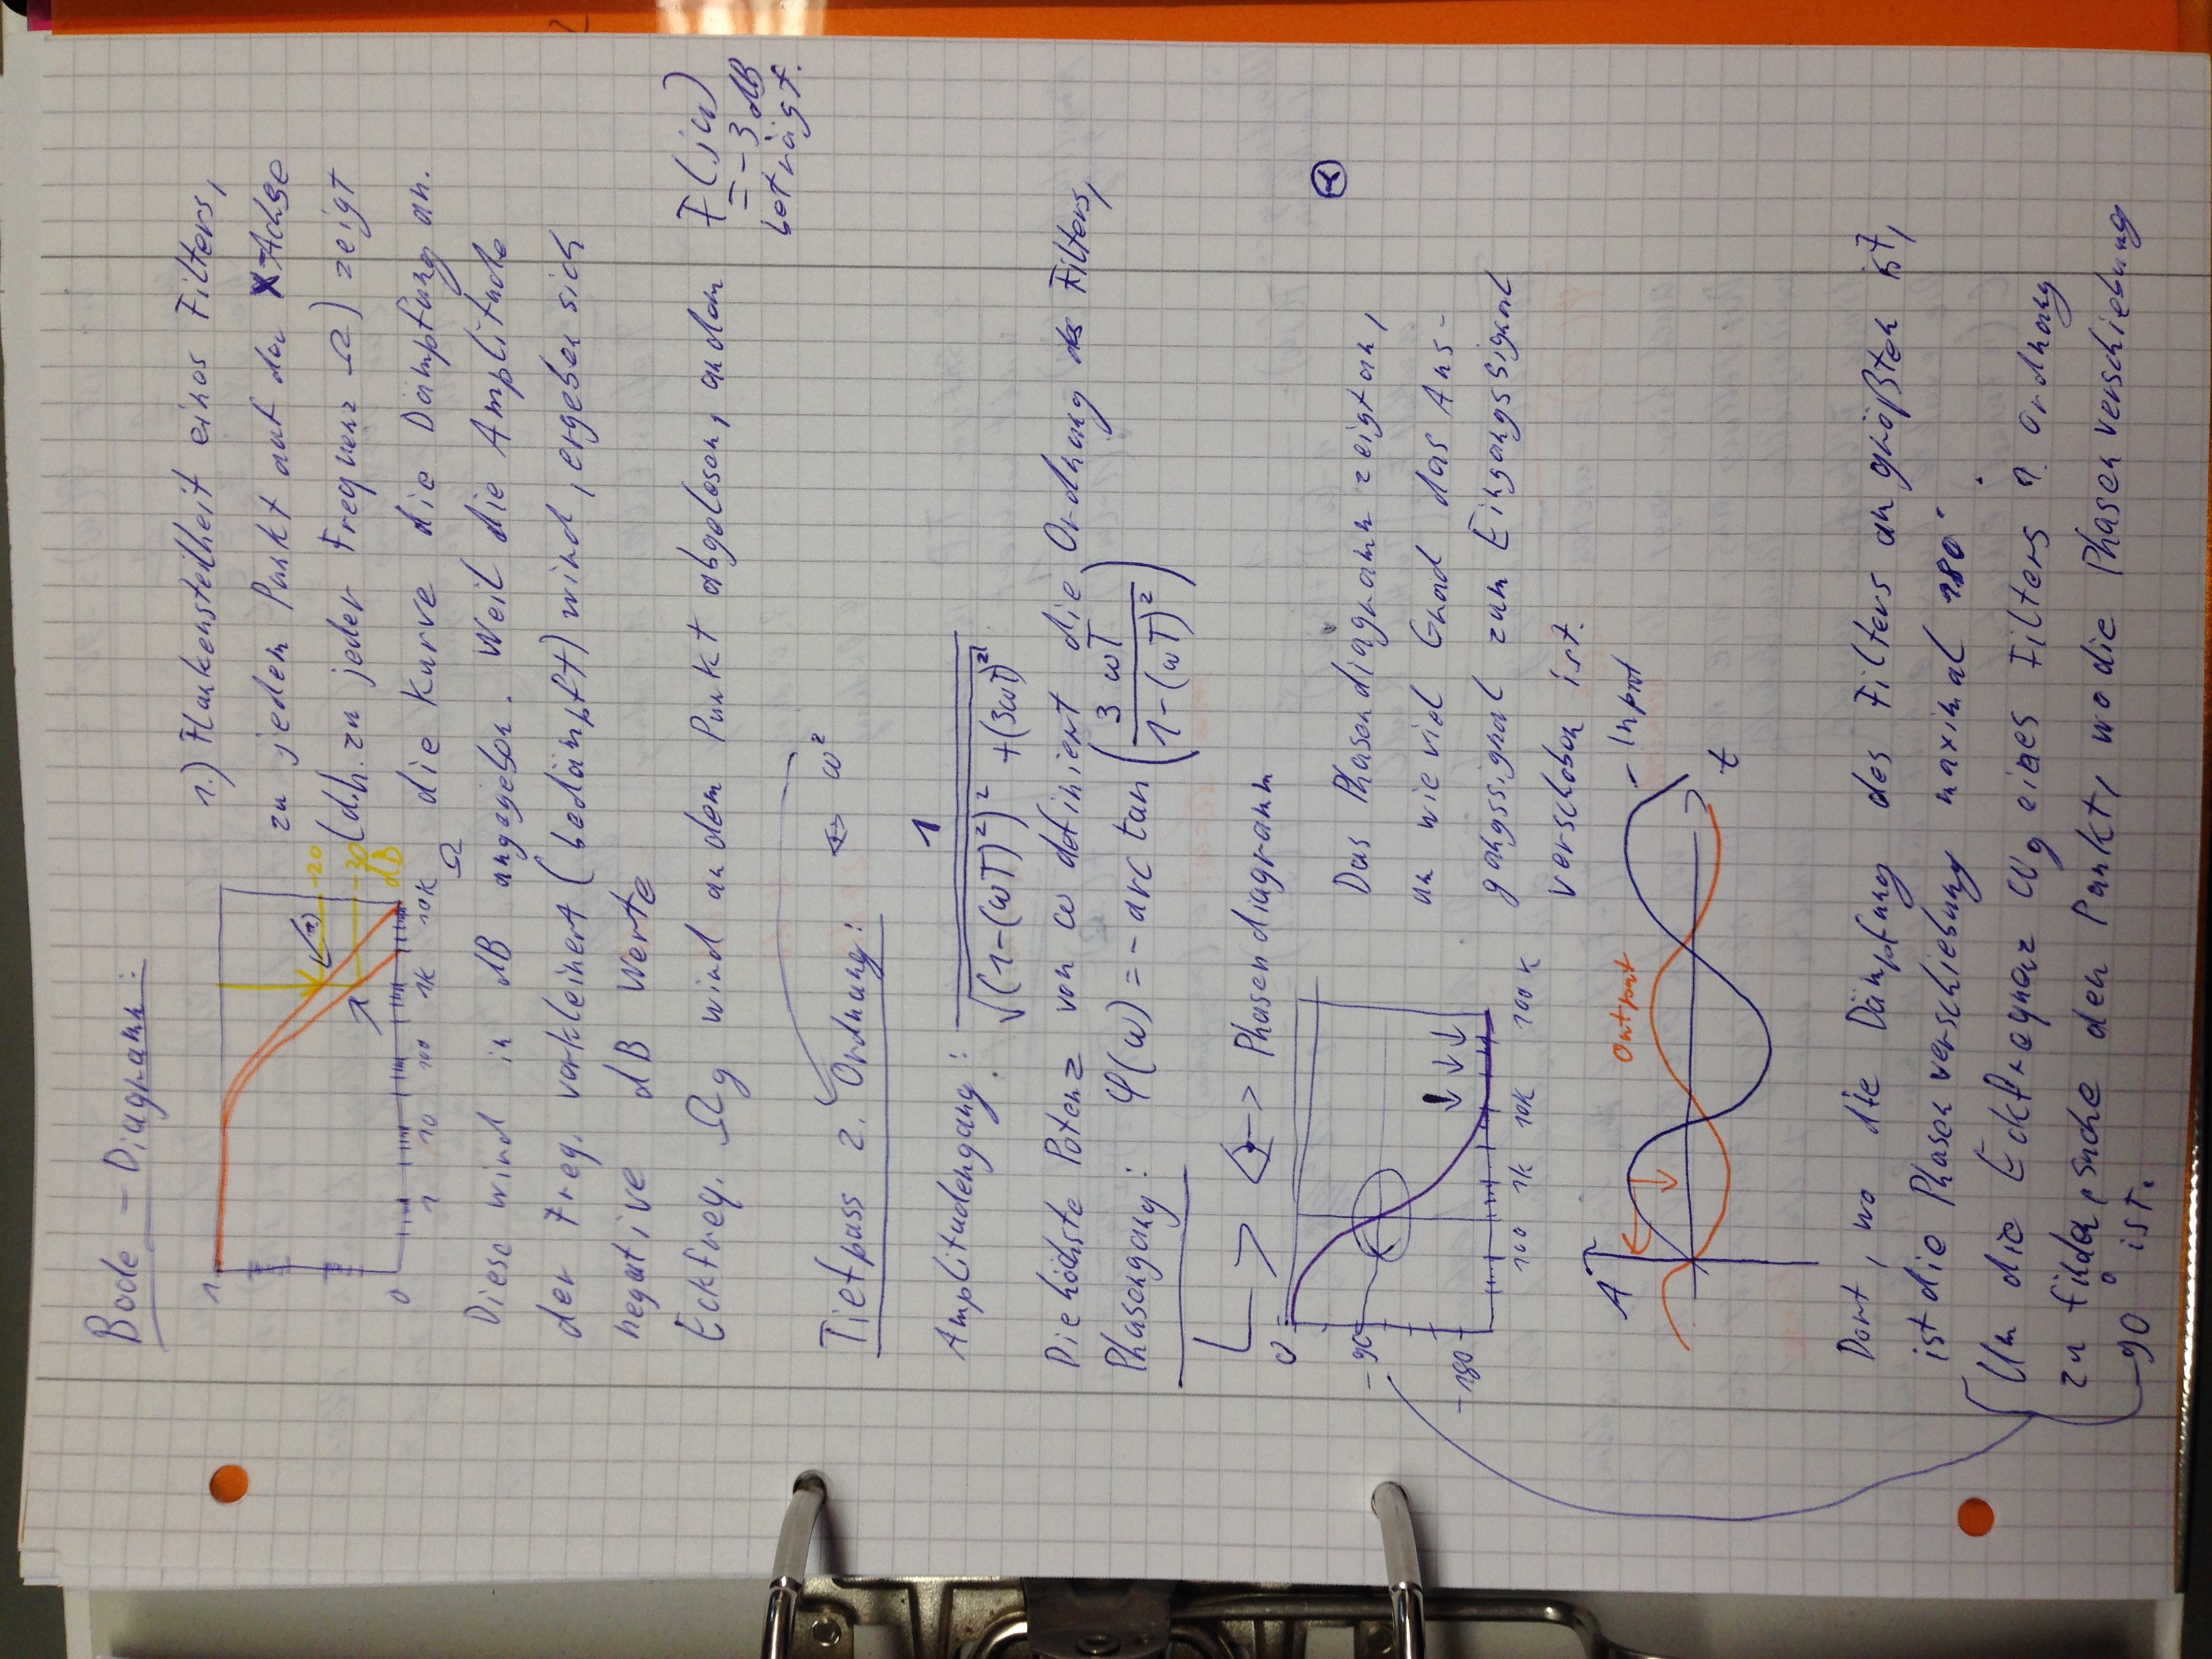 Bode - Diagramm:
1
0
1 10 100 1k 10k
Ω
-20
-30
dB
1.) Flankensteilheit eines Filters,
zu jedem Punkt auf der X-Achse
(d.h. zu jeder Frequenz Ω) zeigt
die Kurve die Dämpfung an.
Diese wird in dB angegeben. Weil die Amplitude
der Freq. verkleinert (bedämpft) wird, ergeben sich
negative dB Werte
Eckfreq. Ωg wird an dem Punkt abgelesen, an dem F(jω)
= -3 dB
beträgt.
Tiefpass 2. Ordnung: <-> ω²
Amplitudengang: 1 / √((1-(ωT)²)² + (3ωT)²)
Die höchste Potenz von ω definiert die Ordnung des Filters,
Phasengang: φ(ω) = - arc tan (3 ωT / 1-(ωT)²)
<-> Phasendiagramm
0
-90
-180
100 1k 10k 100k
Das Phasendiagramm zeigt an,
um wieviel Grad das Aus-
gangssignal zum Eingangssignal
verschoben ist.
A
Output
- Input
t
Dort, wo die Dämpfung des Filters am größten ist,
ist die Phasenverschiebung maximal 180°.
Um die Eckfrequenz ωg eines Filters Ordnung
zu finden, suche den Punkt, wo die Phasenverschiebung
-90° ist.